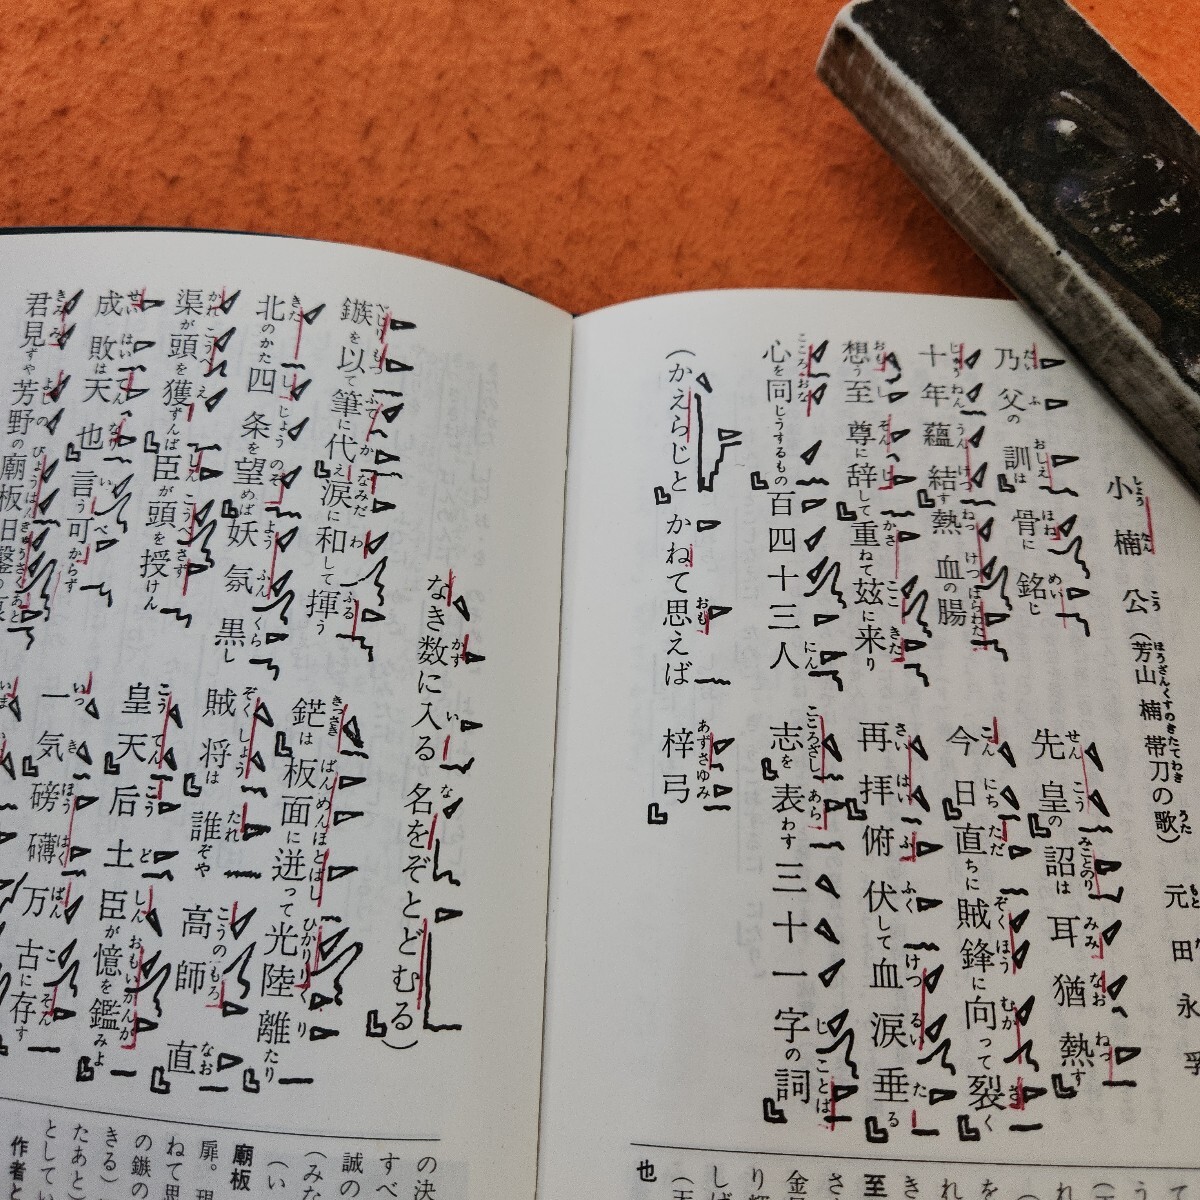 小楠公（芳山楠帯刀の歌）　元田永孚
乃父の訓は骨に銘じ　先皇の詔は耳猶熱す
十年蘊結す熱血の腸　今日直ちに賊鋒に向って裂く
想う至尊に辞して重ねて茲に来り　再拝俯伏して血涙垂る
心を同じうするもの百四十三人　志を表わす三十一字の詞
（かえらじと　かねて思えば　梓弓
也
なき数に入る　名をぞとどむる）
鏃を以て筆に代え涙に和して揮う　鋩は板面に迸って光陸離たり
北のかた四条を望めば妖氛黒し　賊将は誰ぞや高師直
渠が頭を獲ずんば臣が頭を授けん　皇天后土臣が憶を鑑みよ
成敗は天也言う可からず　一気磅礴万古に存す
君見ずや芳野の廟板旧鑿の痕
の決
すべ
誠の
（みな
（い
廟板
扉。現
ねて思
の鏃の
きる）
たあと）
としてい
作者と